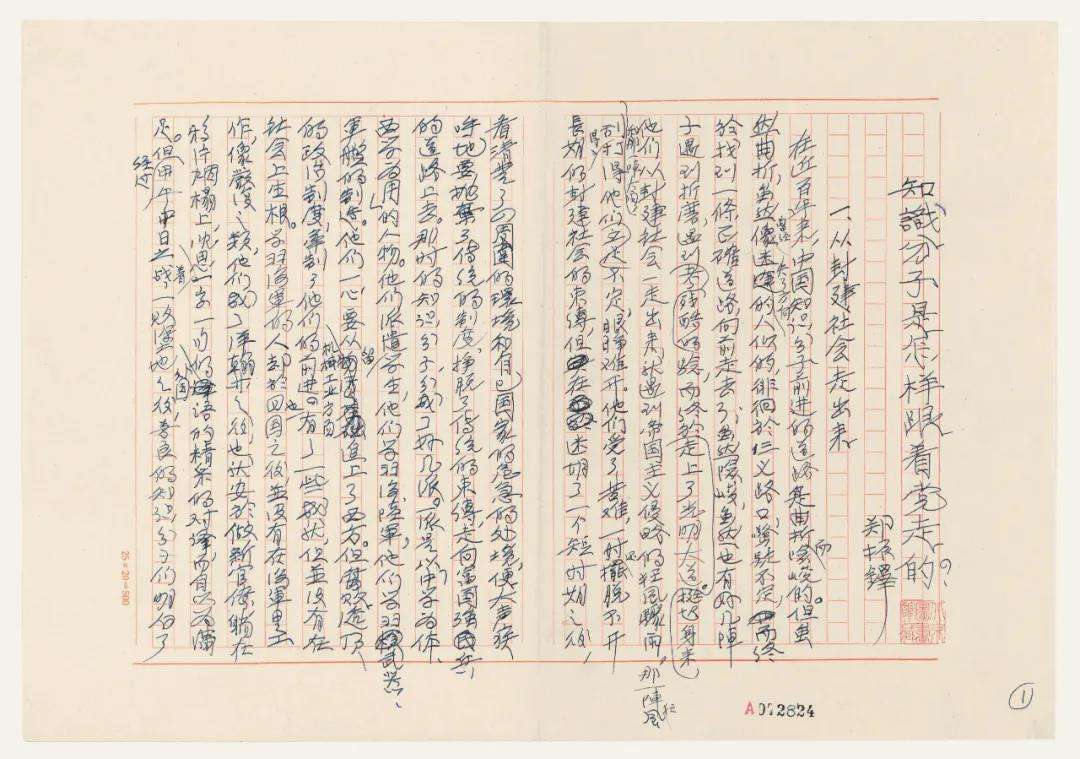 知識分子是怎样跟着党走的?
郑振鐸
一、从封建社会走出来
在近百年来,中国知识分子前进的道路是曲折而險峻的。但虽
然曲折,虽然像曾经失了方向的人似的,徘徊於三义路口,驚疑不定,而终
於找到一條正確道路,向前走去了;虽然險峻,虽然也有好几陣
子遇到折磨,遇到考残酷的考驗,而终於走上了光明大道,挺起身来。
他们从封建社会一走出来,就遇到帝国主义侵略的狂風驟雨,那一陣狂風
刮得他们立足不定,眼睛难开。他们受了苦难,一时还擺脱不开
長期的封建社会的束缚,但在迷胡了一个短时期之後,
看清楚了四周圍的環境和自己国家的危急的处境,便大声疾
呼地要抛棄了传統的制度,挣脱了传統的束缚,走向富国强兵
的道路上去。那时的知识分子分成了好几派。一派是以"中学为体,
西学为用"的人物。他们派遣学生,他们学习海陸軍,他们学习武器、
軍艦的制造。他们一心要从机械工业方面追上了西方。但腐败透顶
的政治制度,牽制了他们的前进。有了一些成就,但並没有在
社会上生根。学习海軍的人却於回国之後,並没有在海軍里工
作,像嚴復之類,他们成了洋翰林之後,也就安於做新官僚,躺在
鸦片烟榻上,沈思着一字一句的外国語的精采的对譯,而自以为满
足。但经过甲午中日之战一败塗地之後,善良的知识分子们明白了
25×20=500
A 012824
1